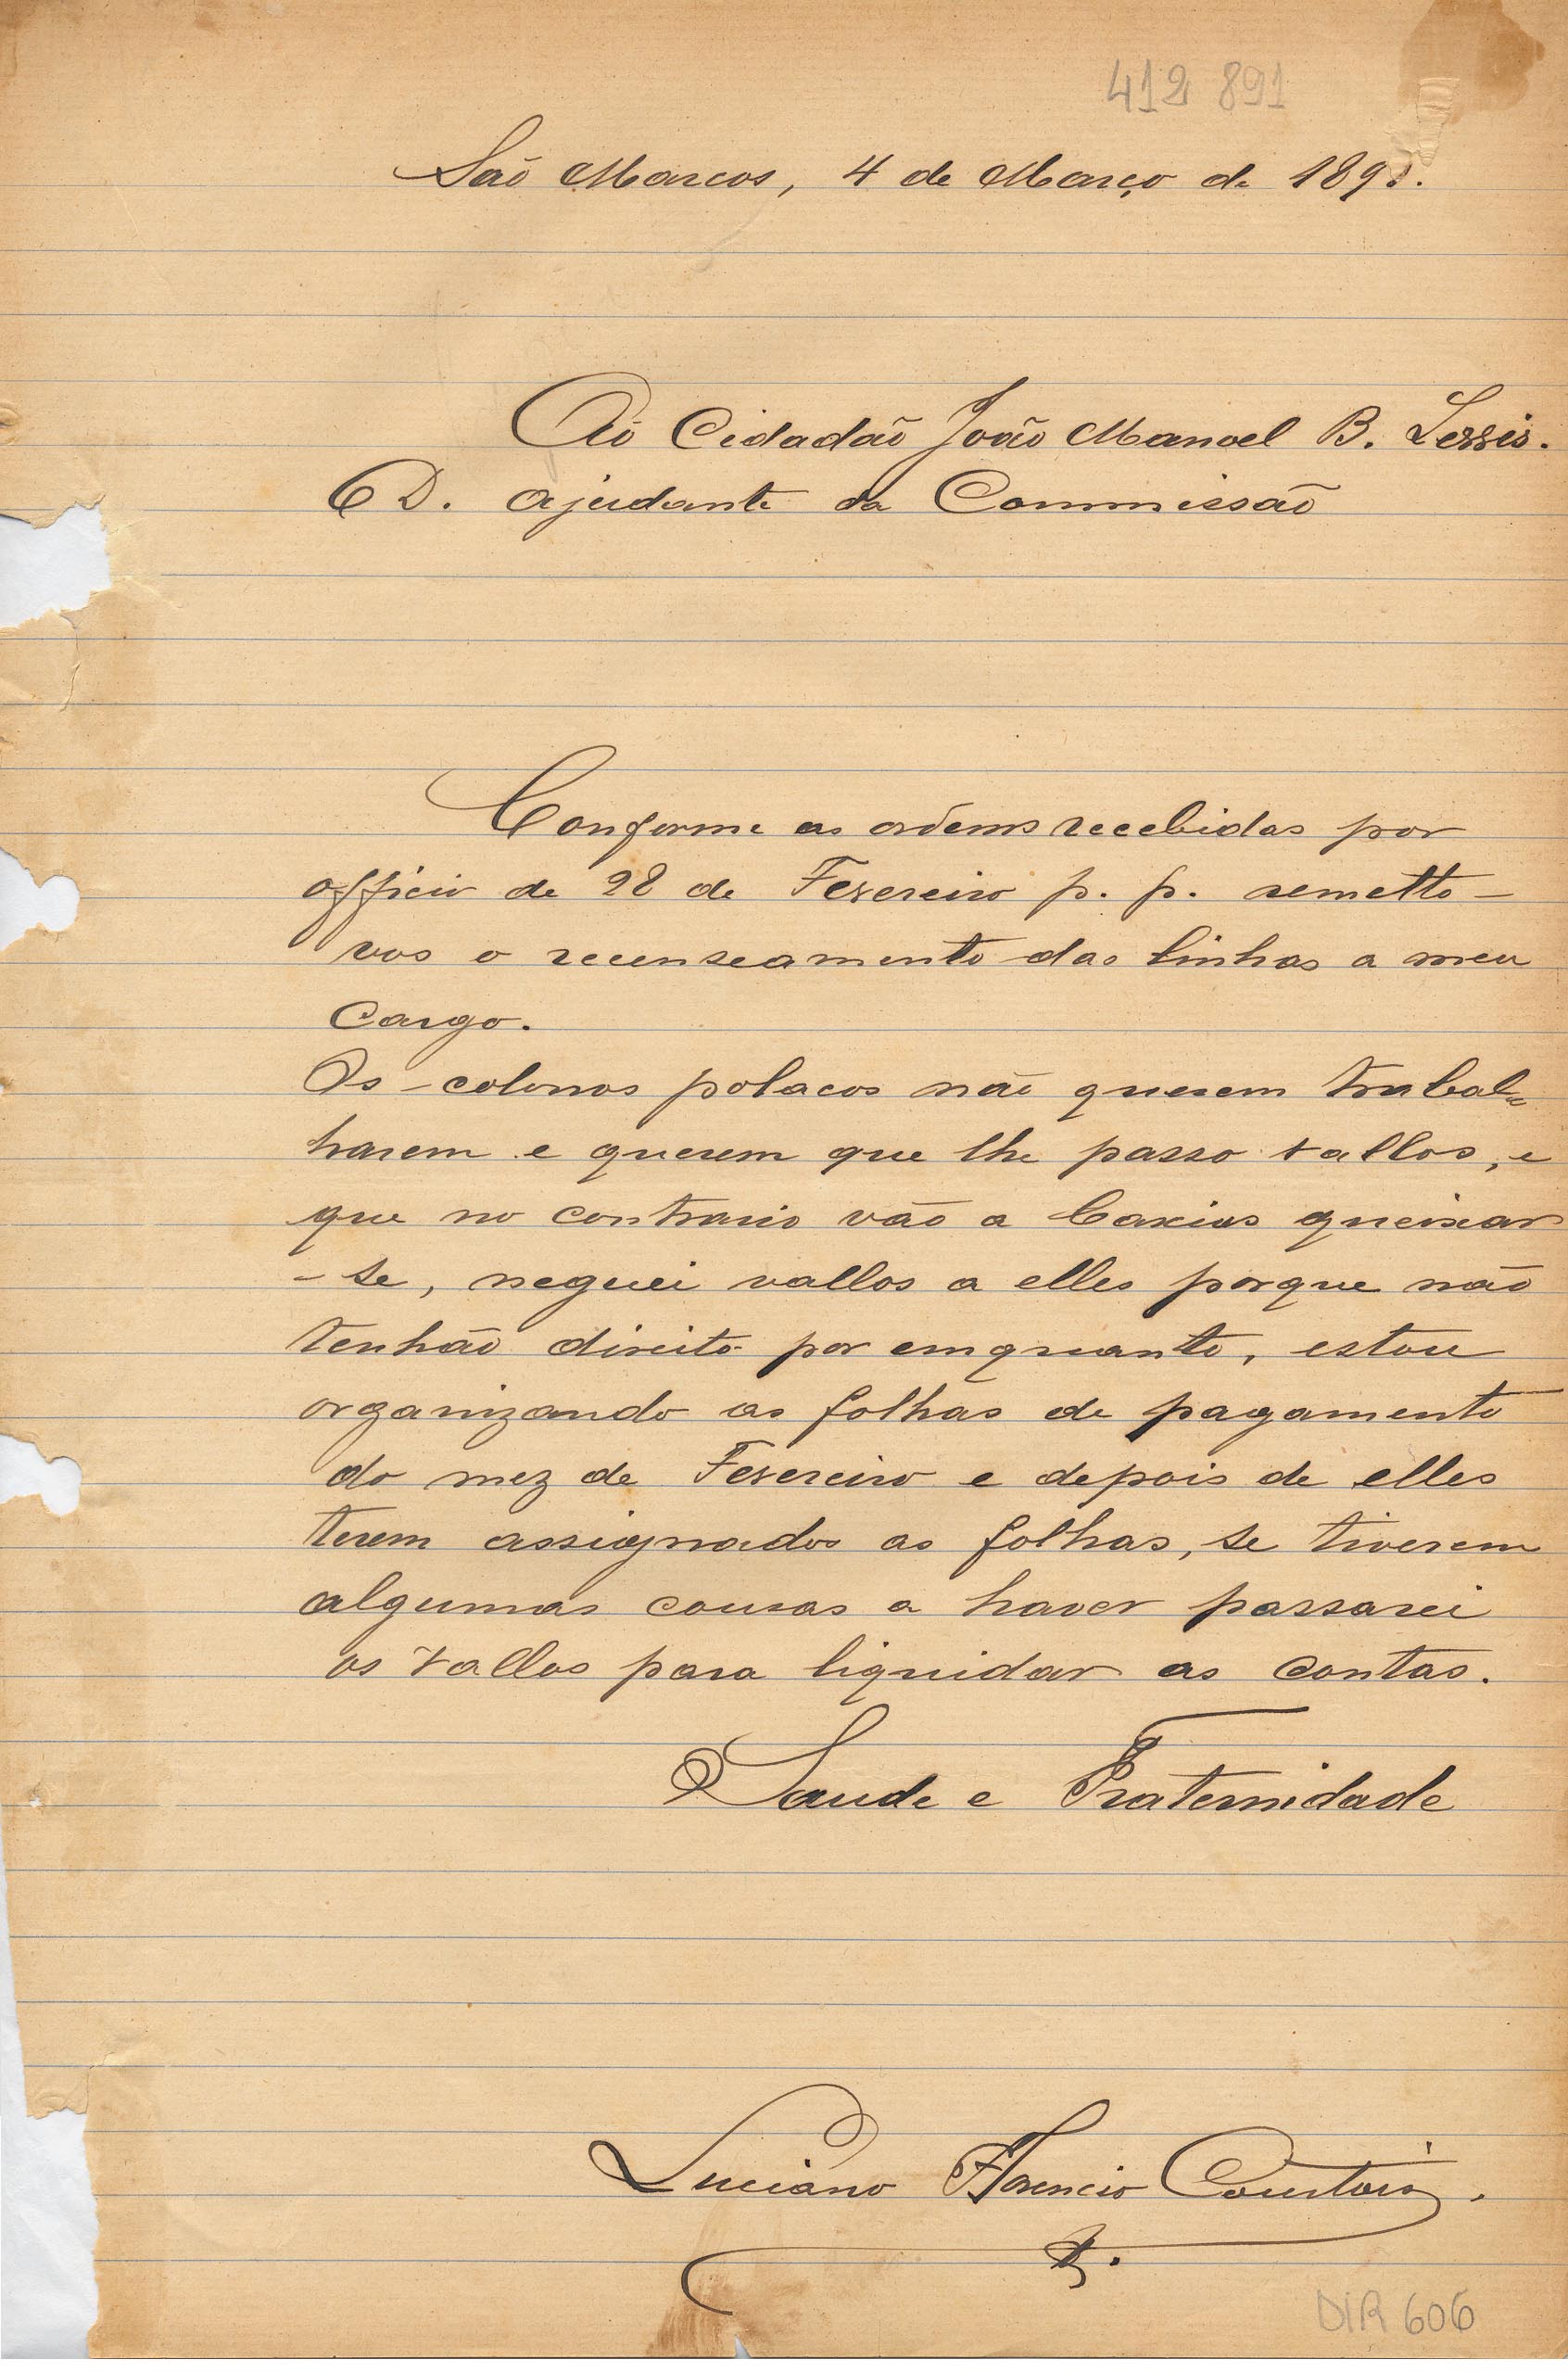 412 891
São Marcos, 4 de Março de 1891.
Ao Cidadão João Manoel B. Lessis.
D. ajudante da Commissão
Conforme as ordems recebidas por
officio de 28 de Fevereiro p. p. remetto -
vos o recenseamento das linhas a meu
cargo.
Os colonos polacos não querem trabal=
harem e querem que lhe passo vallos, e
que no contrario vão a Caxias queixar
- se, neguei vallos a elles porque não
tenhão direito por emquanto, estou
organizando as folhas de pagamento
do mez de Fevereiro e depois de elles
terem assignados as folhas, se tiverem
algumas cousas a haver passarei
os vallos para liquidar as contas.
Saude e Fraternidade
Luciano Florencio Courtois.
DIR 606